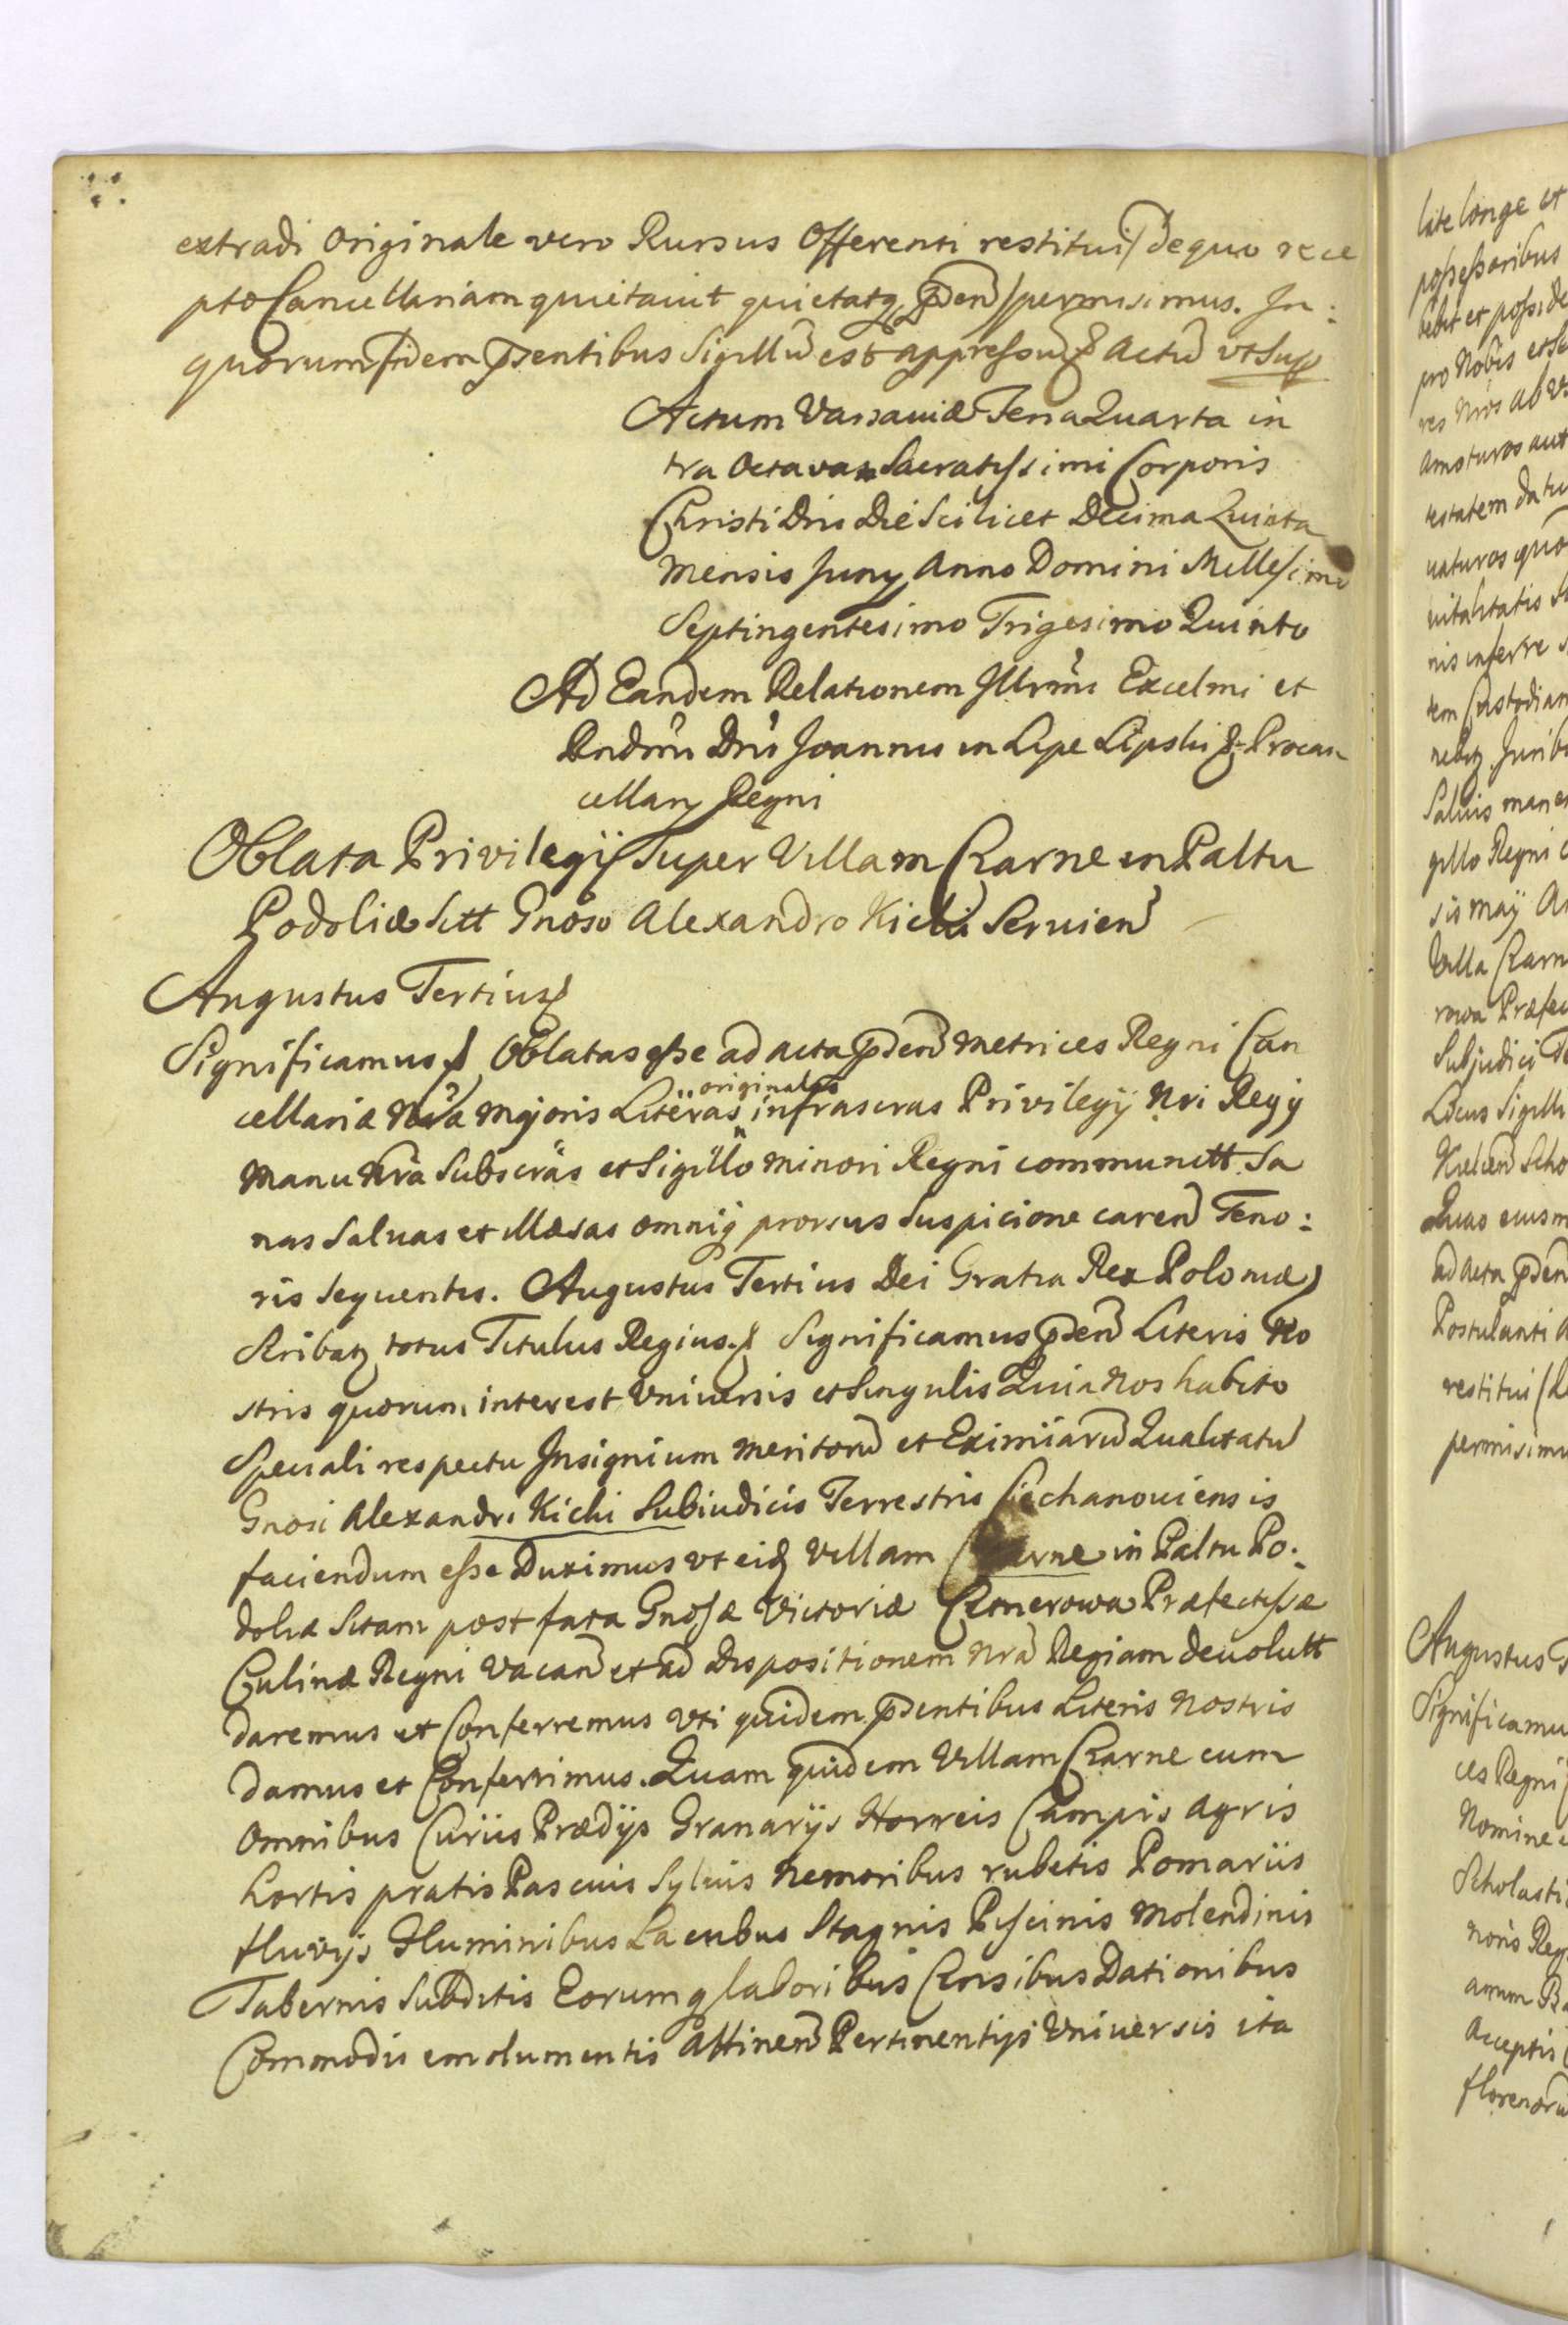 extradi Originale vero Rursus Offerenti restitui / de quo rece
pto Cancellariam quietauit quietatq p̃den̄ / permisimus. In:
quorum fidem p̃sentibus Sigillū est appressū & Actū vt Sup
Actum Varsauiæ Feria Quarta in
tra Octavam Sacratissimi Corporis
Christi Dn̄i Die Scilicet Decima Quinta
Mensis Juny Anno Domini Millesimo
Septingentesimo Trigesimo Quinto
Ad Eandem Relationem Illrm̄i Excelmi et
Rndm̄i Dn̄i Joannis in Lipe Lipski & Procan
cellary Regni
Oblata Privilegij Super Villam Czarne in Paltu
Podoliæ Sitt Gnoso Alexandro Kicki Seruien̄
Augustus Tertius &
Significamus & Oblatas esse ad acta p̃den̄ Metrices Regni Can
cellariæ Nr̃a Majoris Literas originales infrascras Privilegij Nri Regij
Manu Nr̃a Subscr̃as et Sigillo minori Regni communitt Sa
nas Saluas et Illæsas omniq prorsus Suspicione caren̄ Teno:
ris Sequentis. Augustus Tertius Dei Gratia Rex Poloniæ)
Scribatq totus Titulus Regius. & Significamus p̃den̄ Literis No
stris quorum interest Vniuersis et Singulis Quia Nos habito
Speciali respectu Insignium Meritorū et Eximiarū Qualitatū
Gnosi Alexandri Kicki Subiudicis Terrestris Ciechanouiensis
faciendum esse Duximus vt eid Villam Czarne in Paltu Po:
doliæ Sitam post fata Gnosæ Victoriæ Præfectissæ
Culinæ Regni Vacan̄ et ad Dispositionem Nr̃a Regiam deuolutt
daremus et Conferremus vti quidem p̃sentibus Literis Nostris
damus et Conferimus. Quam quidem Villam Czarne cum
Omnibus Curiis Prædijs Granarijs Horreis Campis Agris
hortis pratis Pascuis Syluis Nemoribus rubetis Pomariis
fluvijs Fluminibus Lacubus Stagnis Piscinis Molendinis
Tabernis Subditis Eorumq laboribus Censibus Dationibus
Commodis emolumentis Attinen̄ Pertinentijs Vniuersis ita
late longe et
possessoribus
pro Nobis
testatem datu
uitalitatis
nis inferre
tem Custodiam
Saluis
gillo Regni
sis maÿ
Villa Czarn
rowa Præfec
Subjudici
Locus Sigilli
ad Acta p̃den
Postulanti
restitui
permisimu
Augustus
Significamu
ces Regni
Nomine
Scholasti
Acceptis
florenorū